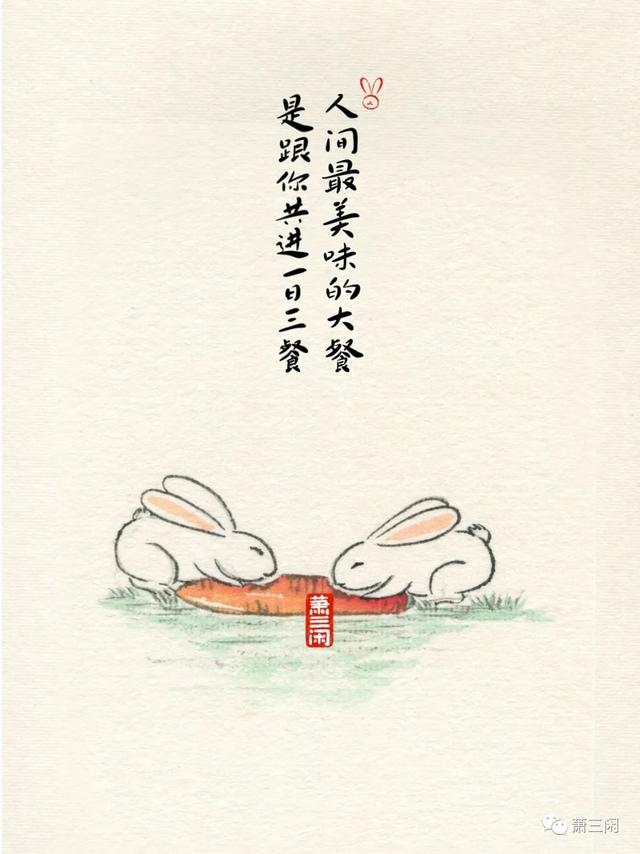 人间最美味的大餐
是跟你共进一日三餐
萧三闲
萧三闲